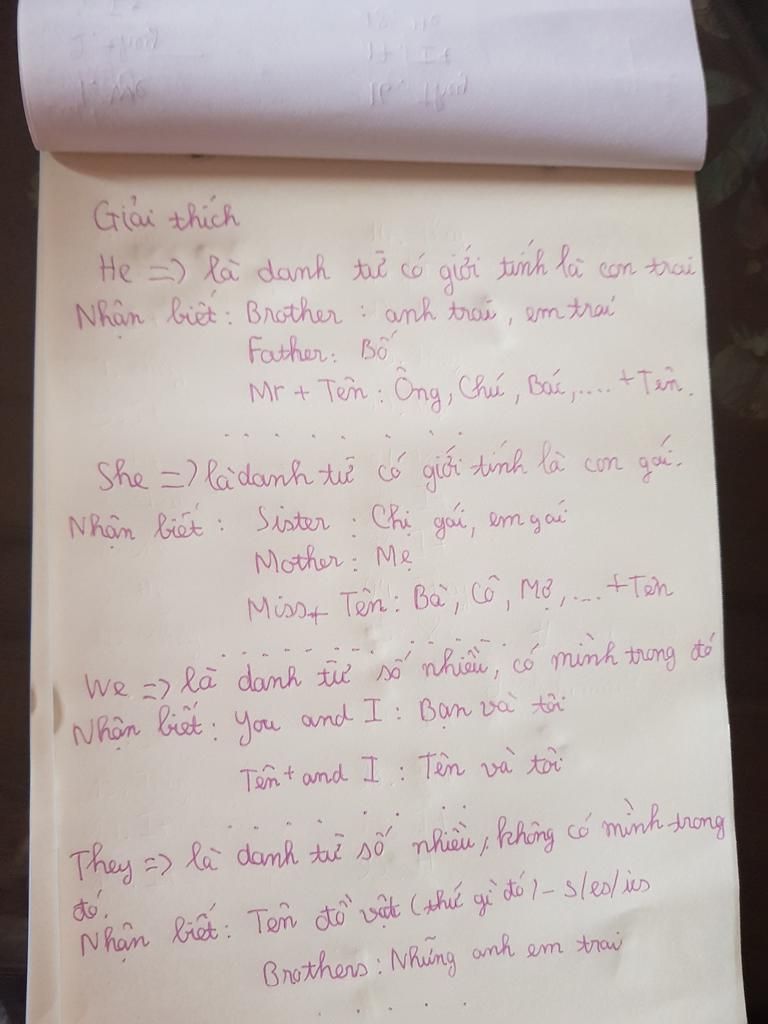 Giải thích
He => là danh từ có giới tính là con trai
Nhận biết: Brother: anh trai, em trai
Father: Bố
Mr + Tên: Ông, Chú, Bác,.... + Tên.
. . . . . . . .
She => là danh từ có giới tính là con gái.
Nhận biết: Sister: Chị gái, em gái
Mother: Mẹ
Miss + Tên: Bà, Cô, Mợ,.... + Tên
. . . . . . . . . .
We => là danh từ số nhiều, có mình trong đó
Nhận biết: You and I: Bạn và tôi
Tên + and I: Tên và tôi
. . . . . . .
They => là danh từ số nhiều, không có mình trong
đó.
Nhận biết: Tên đồ vật (thứ gì đó) - s/es/ies
Brothers: Những anh em trai
. . . . .